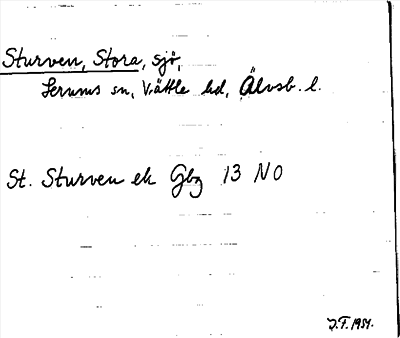 Sturven, Stora, sjö,
Lerums sn, Vättle hd, Älvsb. l.
St. Sturven ek Gbg 13 NO
J.F. 1954.